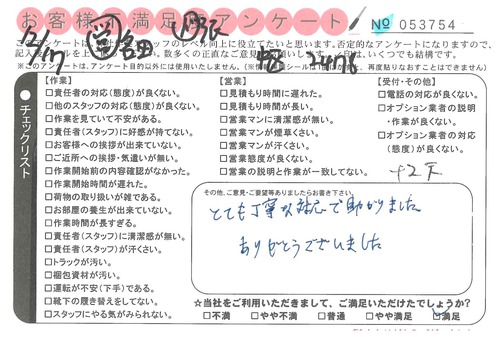 お客様満足アンケート!
№ 053754
12/17
このアンケートは、
※このアンケートは、アンケート目的以外には使用いたしません。
チェックリスト
【作業】
□責任者の対応(態度)が良くない。
□他のスタッフの対応(態度)が良くない。
□作業を見ていて不安がある。
□責任者(スタッフ)に好感が持てない。
□お客様への挨拶が出来ていない。
□ご近所への挨拶・気遣いが無い。
□作業開始前の内容確認がなかった。
□作業開始時間が遅れた。
□荷物の取り扱いが雑である。
□お部屋の養生が出来ていない。
□作業時間が長すぎる。
□責任者(スタッフ)に清潔感が無い。
□責任者(スタッフ)が汗くさい。
□トラックが汚い。
□梱包資材が汚い。
□運転が不安(下手)である。
□靴下の履き替えをしてない。
□スタッフにやる気がみられない。
【営業】
□見積もり時間に遅れた。
□見積もり時間が長い。
□営業マンに清潔感が無い。
□営業マンが煙草くさい。
□営業マンが汗くさい。
□営業態度が良くない。
□営業の説明と作業が一致してない。
【受付・その他】
□電話の対応が良くない。
□オプション業者の説明
・作業が良くない。
□オプション業者の対応
(態度)が良くない。
その他、ご意見・ご要望等ありましたらお書き下さい。
とても丁寧な対応で助かりました
ありがとうございました
☆当社をご利用いただきまして、ご満足いただけたでしょうか?
□不満 □やや不満 □普通 □やや満足 □満足